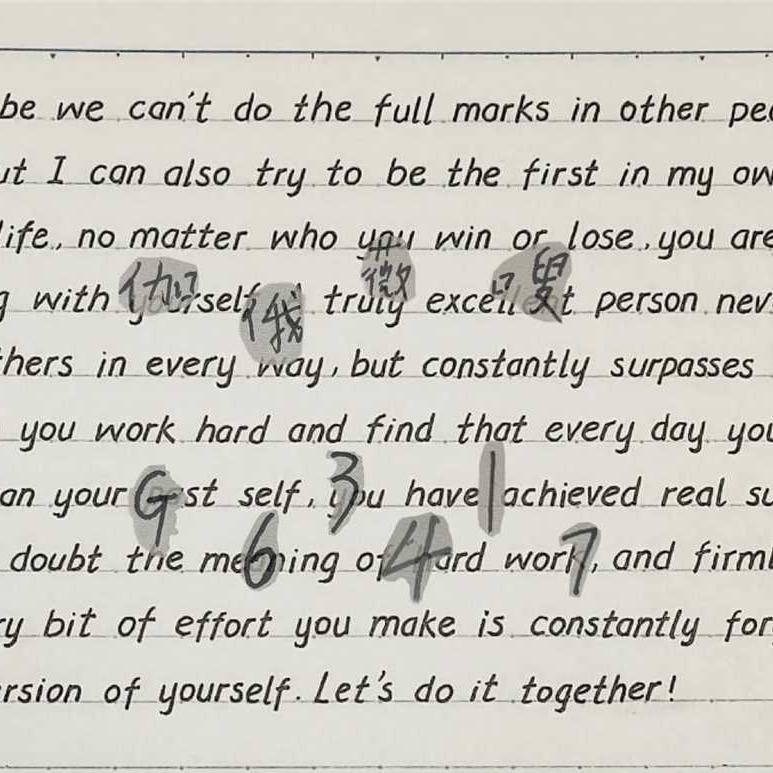 be we can't do the full marks in other
ut I can also try to be the first in my ow
life, no matter who you win or lose, you are
g with yourself truly excellent person nev
thers in every way, but constantly surpasses
you work hard and find that every day you
an your self, you have achieved real su
doubt the meaning of hard work, and firml
ry bit of effort you make is constantly for
rsion of yourself. Let's do it together!
伽俄微
G63417